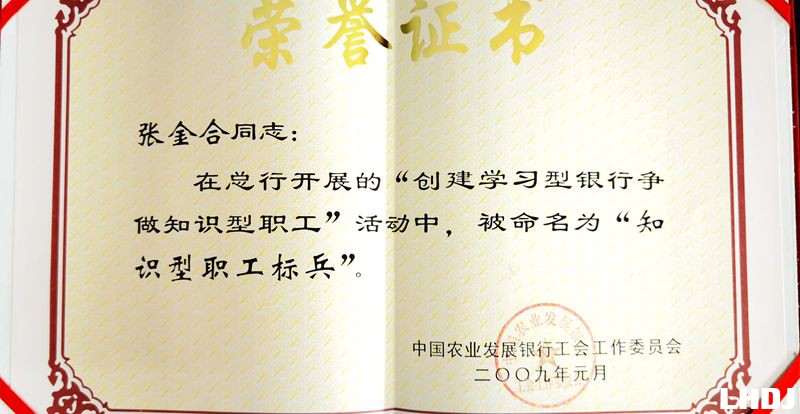 荣誉证书
张金合同志：
在总行开展的“创建学习型银行争
做知识型职工”活动中，被命名为“知
识型职工标兵”。
中国农业发展银行工会工作委员会
二〇〇九年元月
LHDJ